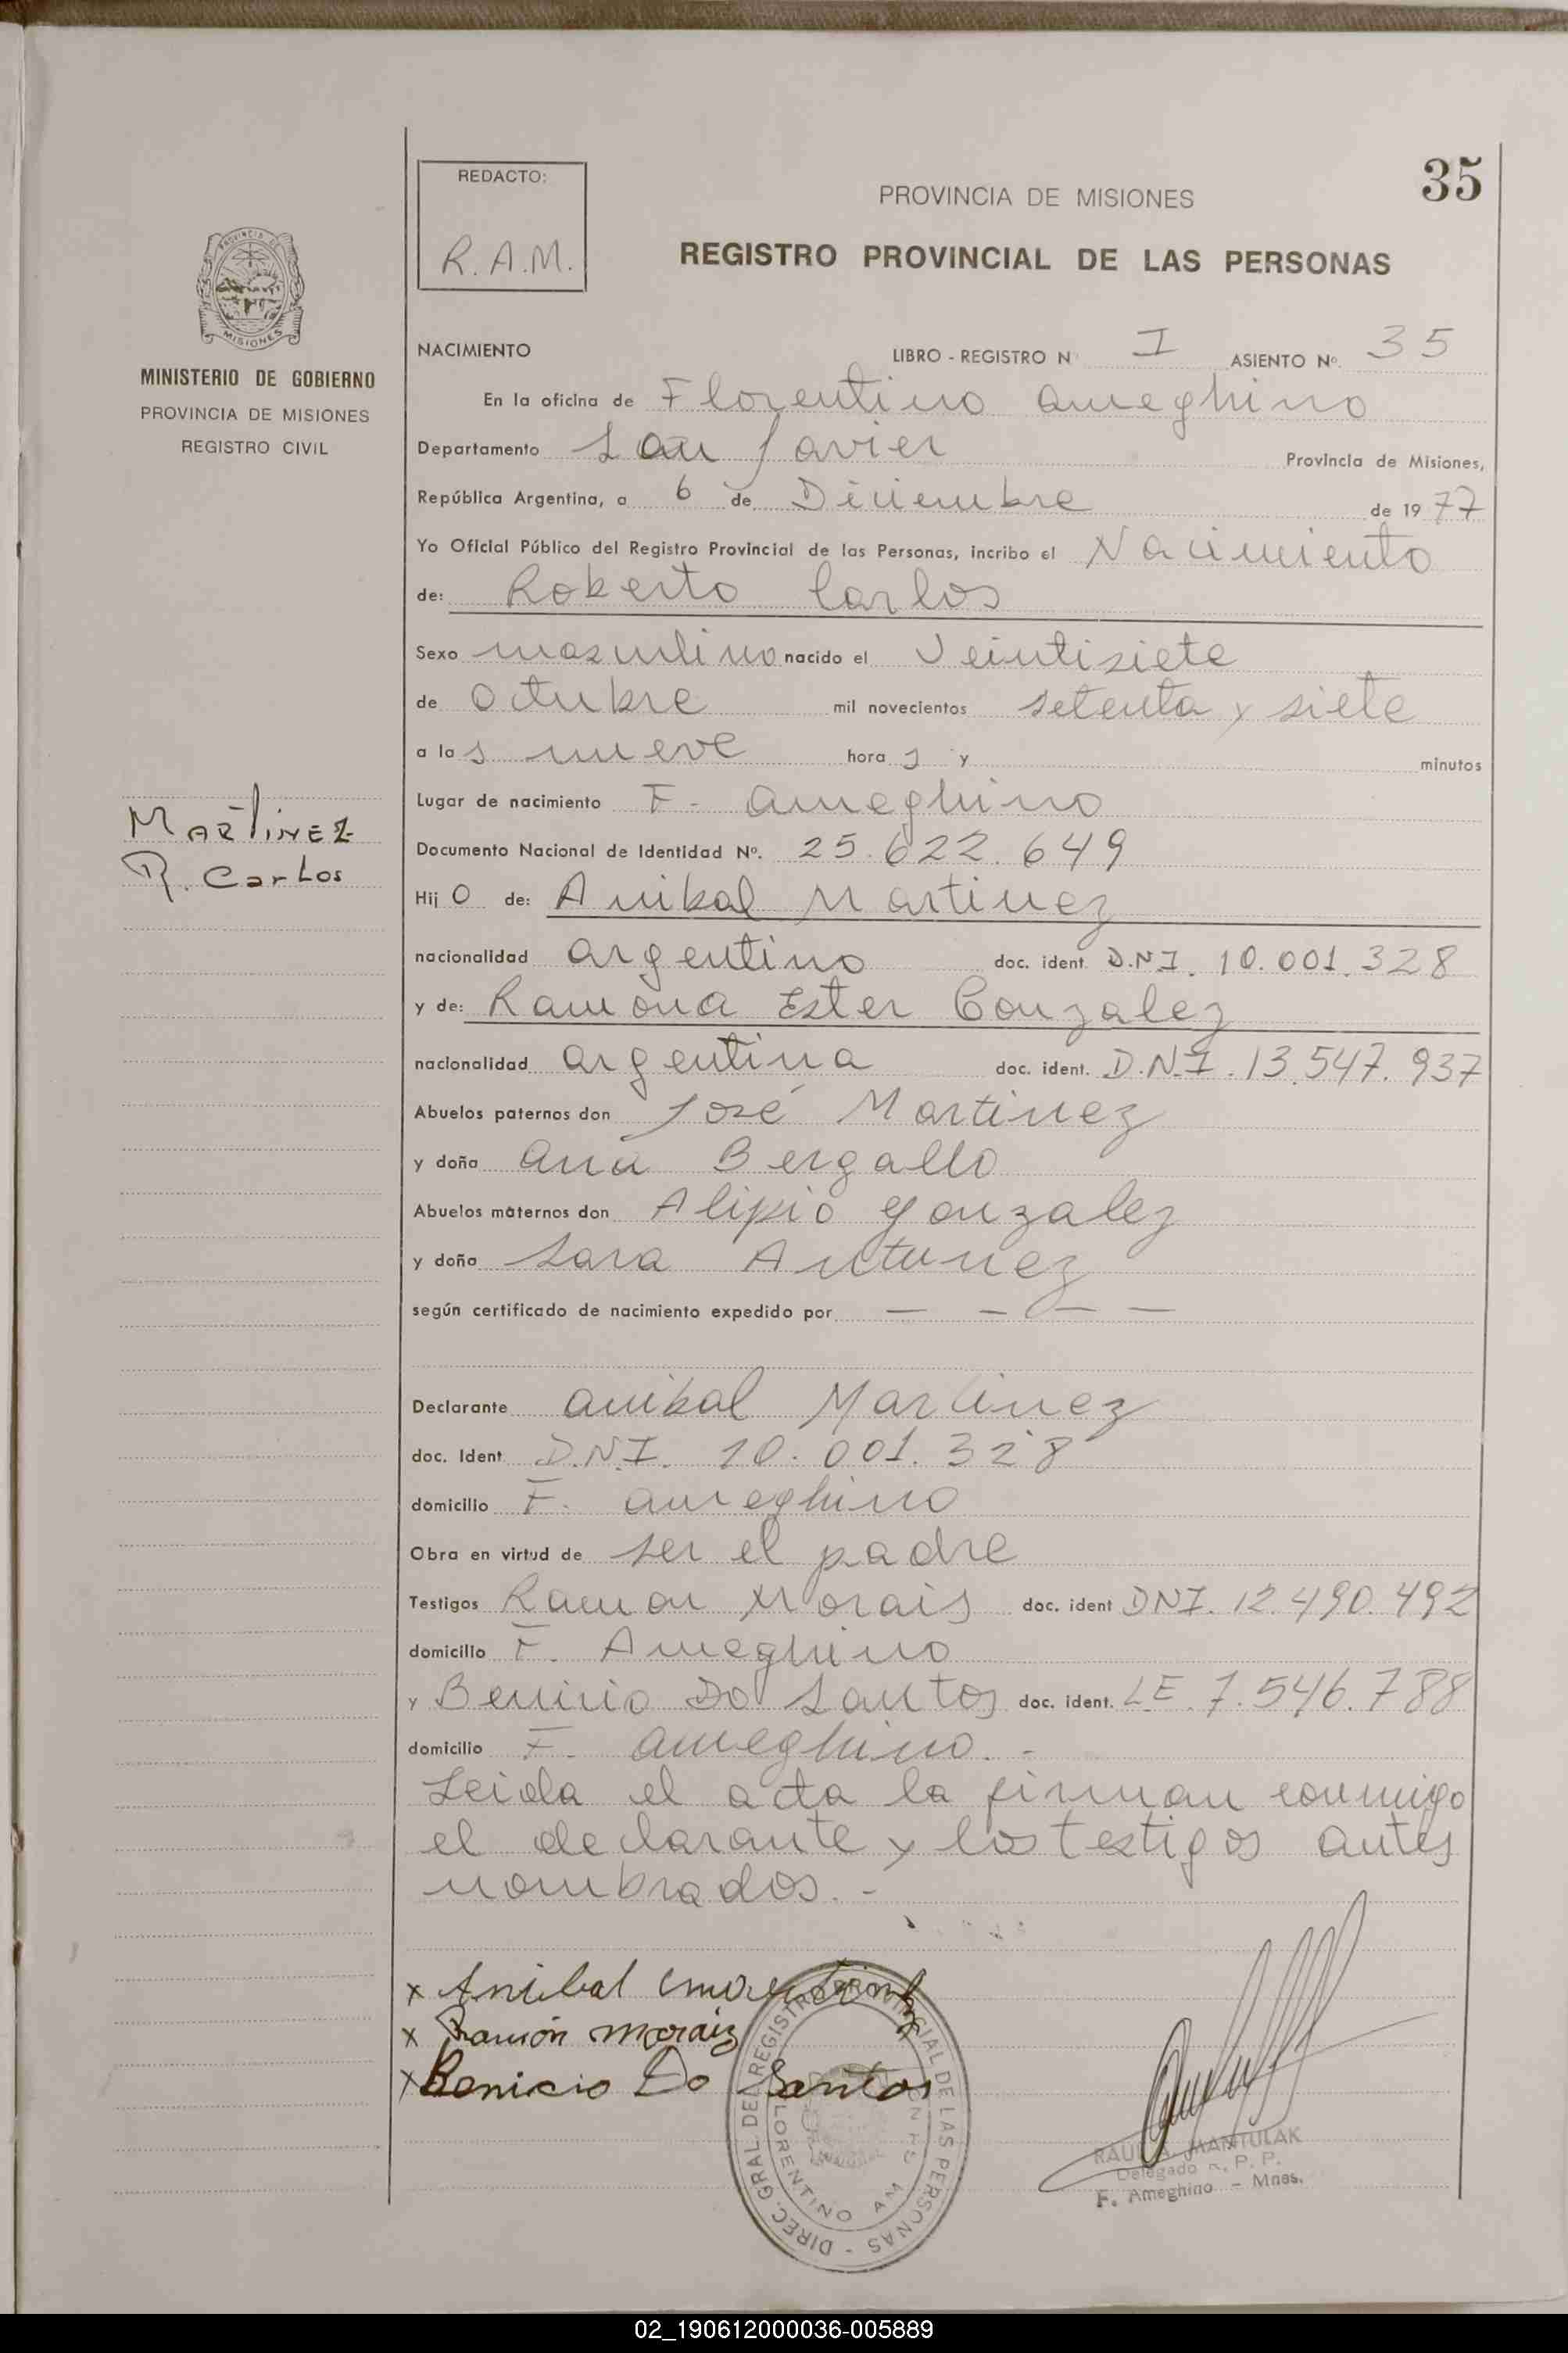 35
REDACTO:
R.A.M.
PROVINCIA DE MISIONES
REGISTRO PROVINCIAL DE LAS PERSONAS
PROVINCIA DE
MISIONES
MINISTERIO DE GOBIERNO
PROVINCIA DE MISIONES
REGISTRO CIVIL
NACIMIENTO LIBRO - REGISTRO Nº I ASIENTO Nº. 35
En la oficina de Florentino Ameghino
Departamento San Javier Provincia de Misiones,
República Argentina, a 6 de Diciembre de 1977
Yo Oficial Público del Registro Provincial de las Personas, incribo el Nacimiento
de: Roberto Carlos
Sexo masculino nacido el Veintisiete
de Octubre mil novecientos setenta y siete
a las nueve horas y minutos
Lugar de nacimiento F. Ameghino
Martinez
R. Carlos
Documento Nacional de Identidad Nº. 25.622.649
Hijo de: Anibal Martinez
nacionalidad argentino doc. ident. D.N.I. 10.001.328
y de: Ramona Ester Gonzalez
nacionalidad argentina doc. ident. D.N.I. 13.547.937
Abuelos paternos don José Martinez
y doña Ana Bergallo
Abuelos maternos don Alipio Gonzalez
y doña Sara Antunez
según certificado de nacimiento expedido por — — — —
Declarante Anibal Martinez
doc. Ident. D.N.I. 10.001.328
domicilio F. Ameghino
Obra en virtud de ser el padre
Testigos Ramon Morais doc. ident DNI. 12.490.492
domicilio F. Ameghino
y Benicio Do Santos doc. ident. L.E. 7.546.788
domicilio F. Ameghino. -
Leida el acta la firman conmigo
el declarante y los testigos antes
nombrados. -
x Anibal Martinez
x Ramón Moraiz
x Benicio Do Santos
DIREC. GRAL. DEL REGISTRO PROVINCIAL DE LAS PERSONAS -
FLORENTINO AMEGHINO
RAUL A. MANTULAK
Delegado R. P. P.
F. Ameghino - Mnes.
02_190612000036-005889